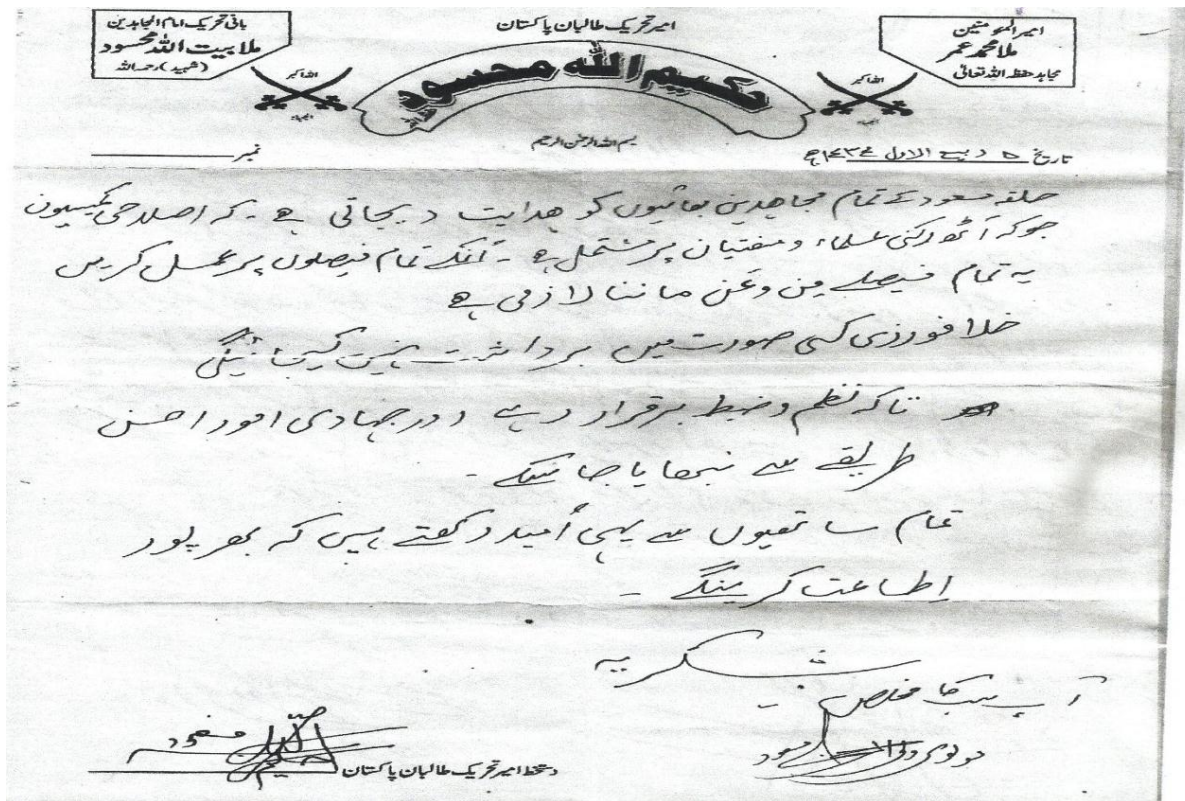 امیر تحریک طالبان پاکستان
امیر المومنین
ملا محمد عمر
مجاہد حفظہ اللہ تعالیٰ
بانی تحریک امام المجاہدین
ملا بیت اللہ محسود
(شہید) رحمہ اللہ
اللہ اکبر
حکیم اللہ محسود
اللہ اکبر
بسم اللہ الرحمٰن الرحیم
تاریخ ۵ ربیع الاول
نمبر
حلقہ مسعود کے تمام مجاہدین بھائیوں کو ھدایت دیجاتی ہے ۔ کہ اصلاحی کمیسیون
جو کہ آٹھ رکنی علماء و مفتیان پر مشتمل ہے ۔ انکے تمام فیصلوں پر عمل کریں
یہ تمام فیصلے من و عن ماننا لازمی ہے
خلاف ورزی کسی صورت میں برداشت نہیں کیجائیگی
تاکہ نظم و ضبط برقرار رہے اور جہادی امور احسن
طریقے سے نبھایا جائیگے ۔
تمام ساتھیوں سے یہی اُمید رکھتے ہیں کہ بھر پور
اِطاعت کرینگے ۔
شکریہ
آپ سب کا مخلص
مولوی ولی مسود
دستخط امیر تحریک طالبان پاکستان